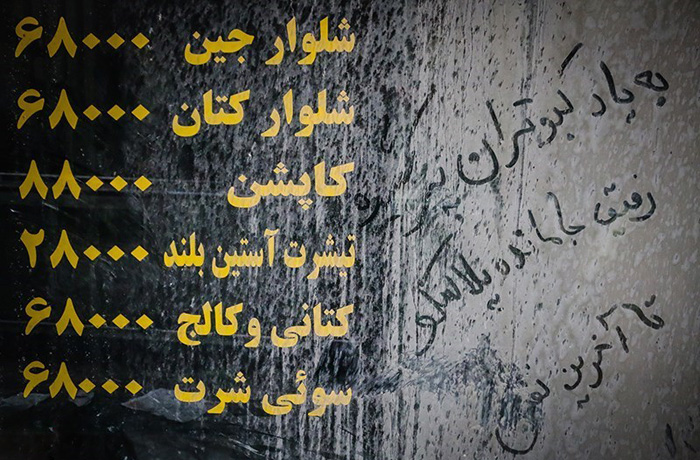 شلوار جین ۶۸۰۰۰
شلوار کتان ۶۸۰۰۰
کاپشن ۸۸۰۰۰
تیشرت آستین بلند ۲۸۰۰۰
کتانی و کالج ۶۸۰۰۰
سوئی شرت ۶۸۰۰۰
به یاد کبوتران
رفیق جامانده پلاسکو
تا آخرین نفس